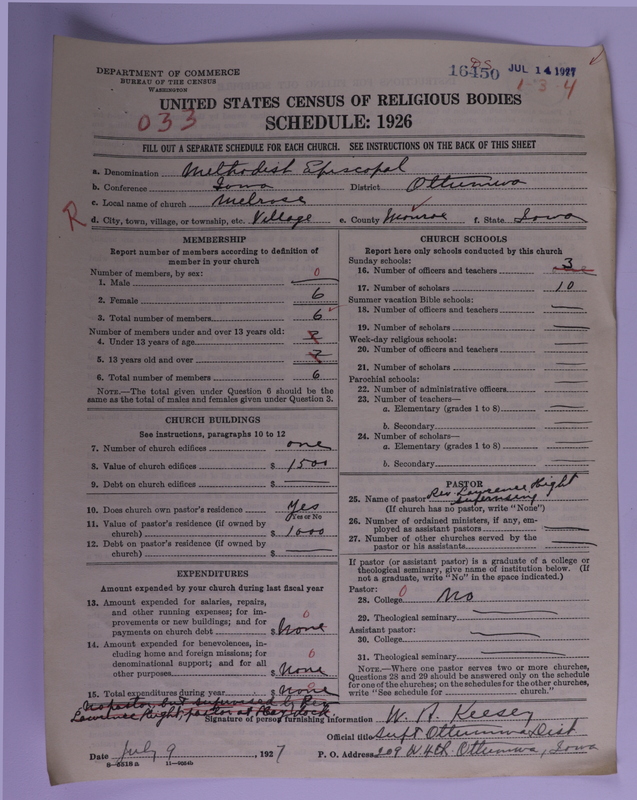 DEPARTMENT OF COMMERCE
BUREAU OF THE CENSUS
WASHINGTON
16450 DS JUL 14 1927
1-3-4
UNITED STATES CENSUS OF RELIGIOUS BODIES
033 SCHEDULE: 1926
FILL OUT A SEPARATE SCHEDULE FOR EACH CHURCH. SEE INSTRUCTIONS ON THE BACK OF THIS SHEET
a. Denomination Methodist Episcopal
b. Conference Iowa District Ottumwa
c. Local name of church Melrose
R d. City, town, village, or township, etc. Village e. County Monroe f. State Iowa
MEMBERSHIP
Report number of members according to definition of
member in your church
Number of members, by sex:
1. Male 0
2. Female 6
3. Total number of members 6
Number of members under and over 13 years old:
4. Under 13 years of age
5. 13 years old and over
6. Total number of members 6
NOTE.—The total given under Question 6 should be
same as the total of males and females given under Question 3.
CHURCH BUILDINGS
See instructions, paragraphs 10 to 12
7. Number of church edifices one
8. Value of church edifices $ 1500
9. Debt on church edifices $
10. Does church own pastor's residence Yes
Yes or No
11. Value of pastor's residence (if owned by
church) $ 1000
12. Debt on pastor's residence (if owned by
church) $
EXPENDITURES
Amount expended by your church during last fiscal year
13. Amount expended for salaries, repairs,
and other running expenses; for im-
provements or new buildings; and for
payments on church debt $ None 0
14. Amount expended for benevolences, in-
cluding home and foreign missions; for
denominational support; and for all
other purposes $ None 0
15. Total expenditures during year $ None 0
No pastor but supervised by Rev
Lawrence Hight, pastor at
CHURCH SCHOOLS
Report here only schools conducted by this church
Sunday schools:
16. Number of officers and teachers 3
17. Number of scholars 10
Summer vacation Bible schools:
18. Number of officers and teachers
19. Number of scholars
Week-day religious schools:
20. Number of officers and teachers
21. Number of scholars
Parochial schools:
22. Number of administrative officers
23. Number of teachers—
a. Elementary (grades 1 to 8)
b. Secondary
24. Number of scholars—
a. Elementary (grades 1 to 8)
b. Secondary
PASTOR
25. Name of pastor Rev. Lawrence Hight
supervising
(If church has no pastor, write "None")
26. Number of ordained ministers, if any, em-
ployed as assistant pastors
27. Number of other churches served by the
pastor or his assistants
If pastor (or assistant pastor) is a graduate of a college or
theological seminary, give name of institution below. (If
not a graduate, write "No" in the space indicated.)
Pastor:
28. College 0 No
29. Theological seminary
Assistant pastor:
30. College
31. Theological seminary
NOTE.—Where one pastor serves two or more churches,
Questions 28 and 29 should be answered only on the schedule
for one of the churches; on the schedules for the other churches,
write "See schedule for church."
Signature of person furnishing information W. A. Keesey
Official title Supt Ottumwa Dist
Date July 9, 1927 P. O. Address 209 W 4th. Ottumwa, Iowa
8-5818a 11-9084b